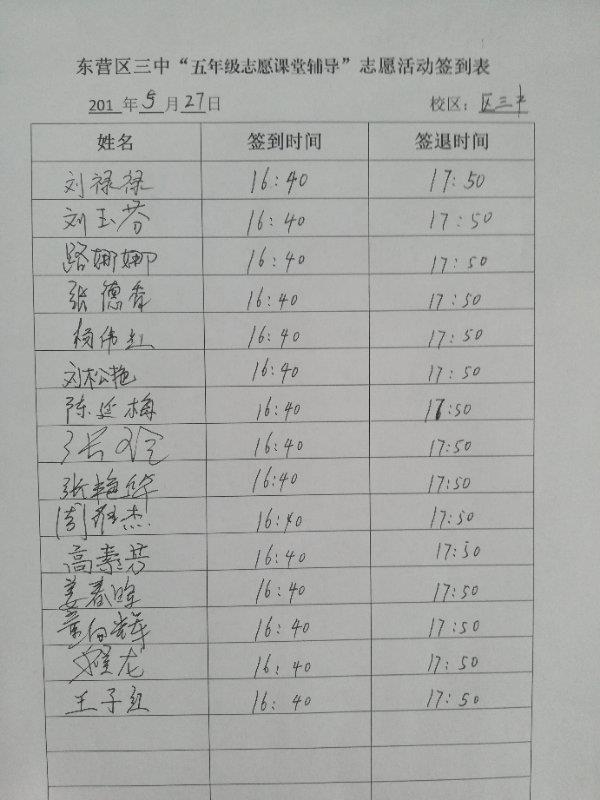 东营区三中“五年级志愿课堂辅导”志愿活动签到表
201 年 5 月 27 日 校区：区三中
姓名 签到时间 签退时间
刘禄禄 16:40 17:50
刘玉芬 16:40 17:50
路娜娜 16:40 17:50
张德香 16:40 17:50
杨伟红 16:40 17:50
刘松艳 16:40 17:50
陈延梅 16:40 17:50
16:40 17:50
张艳华 16:40 17:50
16:40 17:50
高素芳 16:40 17:50
姜春晖 16:40 17:50
董向辉 16:40 17:50
16:40 17:50
王子红 16:40 17:50